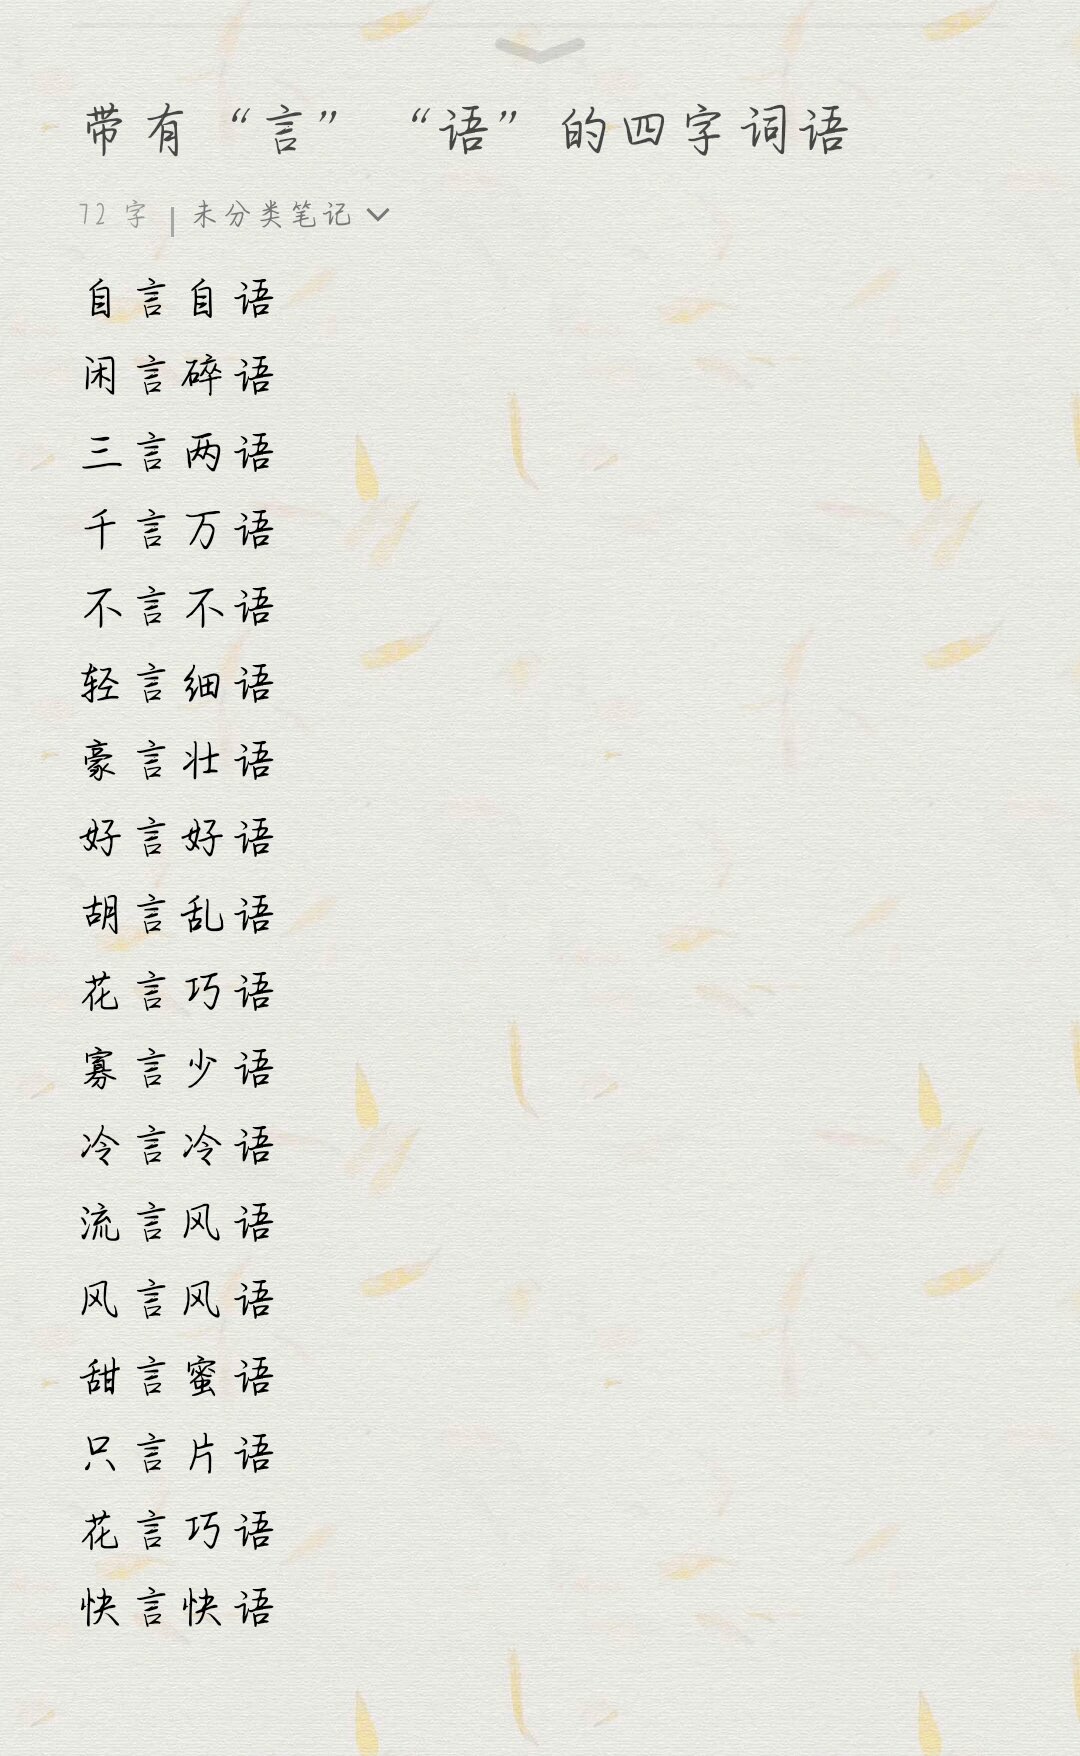 带有“言”“语”的四字词语
72 字 | 未分类笔记
自言自语
闲言碎语
三言两语
千言万语
不言不语
轻言细语
豪言壮语
好言好语
胡言乱语
花言巧语
寡言少语
冷言冷语
流言风语
风言风语
甜言蜜语
只言片语
花言巧语
快言快语